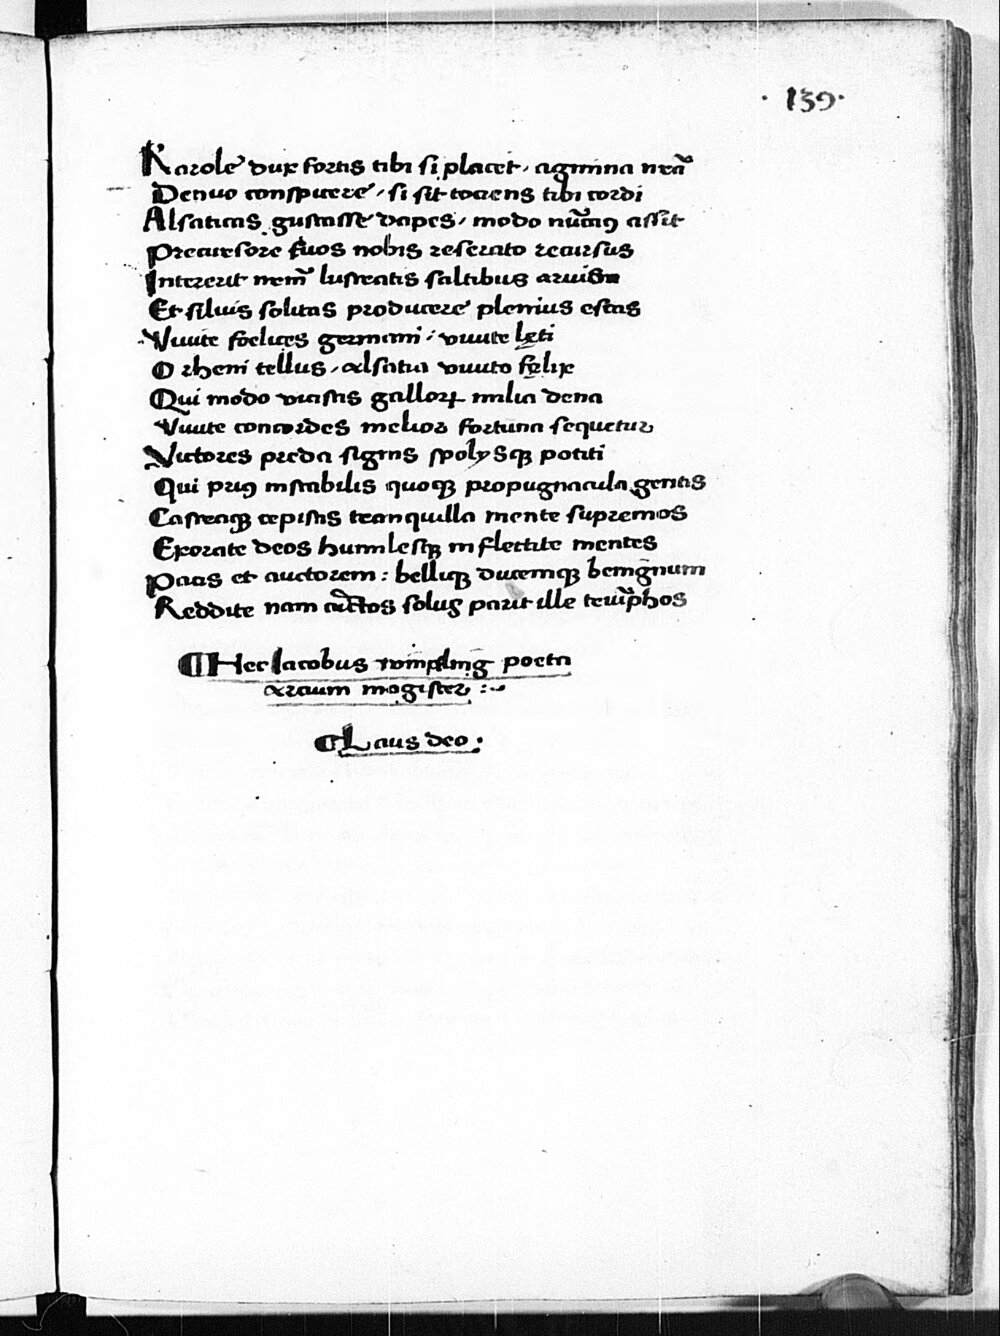 · 139 ·
Karole dux fortis tibi si placet, agmina nr̃a
Denuo conspuere, si sit tociens tibi cordi
Alsaticas gustasse dapes, modo nũcius assit
Precursore suos nobis reserato recursus
Intererit nem̃ lustratis saltibus aruis
Et siluis solitas producere plenius estas
Viuite foelices germani, viuite lęti
O rheni tellus, alsatia viuito fęlix
Qui modo vicistis gallorꝝ milia dena
Viuite concordes melior fortuna sequetur
Victores preda signis spolysqꝫ potiti
Qui priꝰ instabilis quoqꝫ propugnacula gentis
Castraqꝫ cepistis tranquilla mente supremos
Exorate deos humilesqꝫ inflectite mentes
Pacis et auctorem : belliqꝫ ducemqꝫ benignum
Reddite nam cũctos solus parit ille triũphos
¶ Hec Iacobus wimpfling poeta
arcium magister :~
¶ Laus deo .